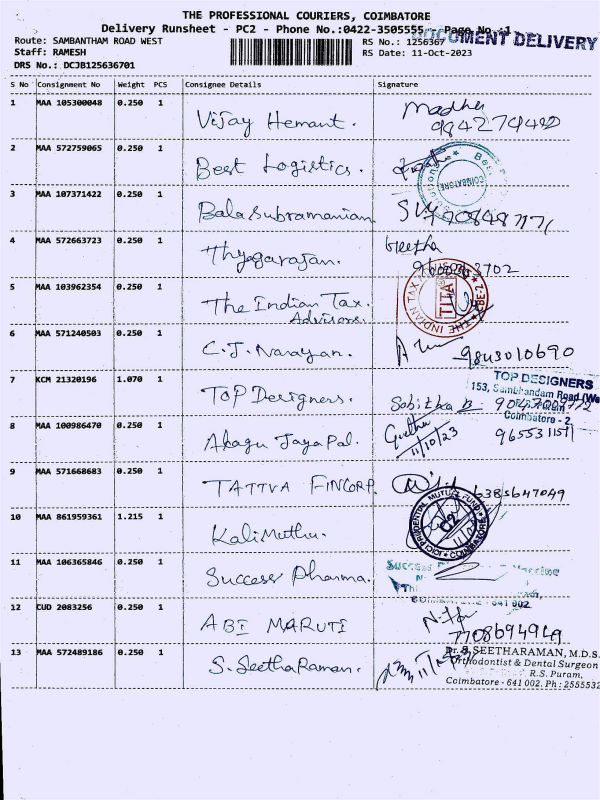 THE PROFESSIONAL COURIERS, COIMBATORE
Delivery Runsheet - PC2 - Phone No.:0422-3505555 Page No :1
DOCUMENT DELIVERY
Route: SAMBANTHAM ROAD WEST RS No.: 1256367
Staff: RAMESH RS Date: 11-Oct-2023
DRS No.: DCJB125636701
S No Consignment No Weight PCS Consignee Details Signature
1 MAA 105300048 0.250 1 Vijay Hemant. Madhu
2 MAA 572759065 0.250 1 Best Logistics.
COIMBATORE
3 MAA 107371422 0.250 1 Balasubramanian
4 MAA 572663723 0.250 1 Thyagarajan. Geetha
5 MAA 103962354 0.250 1 The Indian Tax. Advisors.
THE INDIAN TAX
TITA
6 MAA 571240503 0.250 1 C.J. Narayan. 9843010690
7 KCM 21320196 1.070 1 Top Designers. Sabitha B
TOP DESIGNERS
153, Sambandam Road
Coimbatore - 2.
8 MAA 100986470 0.250 1 Alagu JayaPal. Geetha
11/10/23
9 MAA 571668683 0.250 1 TATTVA FINCORP. 6385647049
10 MAA 861959361 1.215 1 KaliMuthu.
ICICI PRUDENTIAL MUTUAL FUND
COIMBATORE
11 MAA 106365846 0.250 1 Success Pharma.
Success
641 002
12 CUD 2083256 0.250 1 ABI MARUTI
7708694949
13 MAA 572489186 0.250 1 S. SeethaRaman.
Dr. S. SEETHARAMAN, M.D.S.
Orthodontist & Dental Surgeon
R.S. Puram,
Coimbatore - 641 002. Ph : 2555532